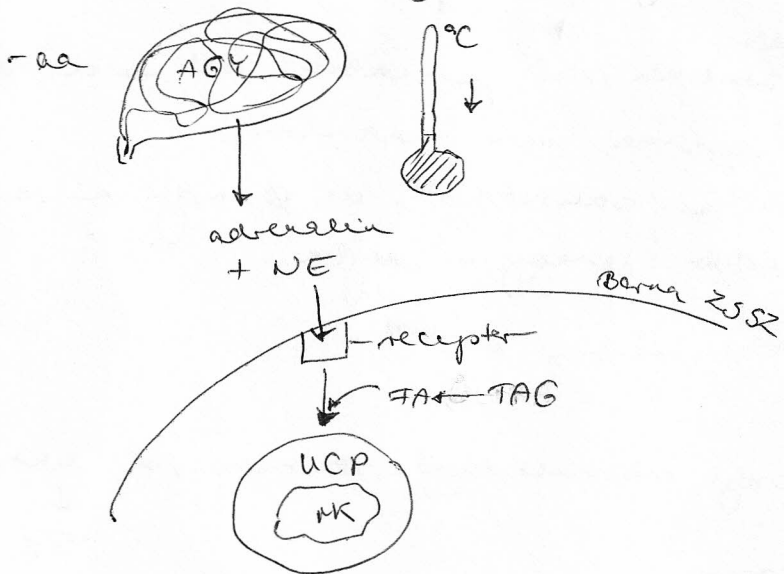 - aa
AGY
°C
adrenalin
+ NE
Barna ZSSZ
receptor
FA ← TAG
UCP
MK